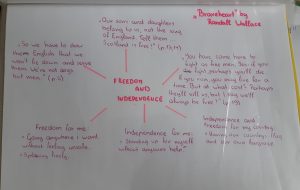 "Braveheart" by
Randall Wallace
"Our sons and daughters
belong to us, not the king
of England. Tell them
Scotland is free!"
"So we have to show
them English that we
won't lie down and
them. We're not dogs
but men."
"You have come here to
fight as free men. Yes, if you
fight, perhaps you'll die. If
you run, you may live for a
time. But at what cost?
they'll kill us, but I say we'll
always be free!"
FREEDOM
AND
INDEPENDENCE
Freedom for me:
- Going anywhere I want
without feeling unsafe.
- Speaking freely.
Independence for me:
- Standing up for myself
without anyones help.
Independence and
Freedom for my country:
- Having our country, flag
and our own language.